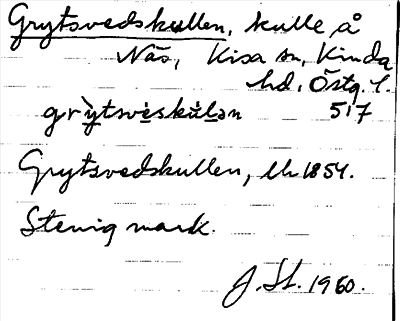 Grytsvedskullen, kulle å
Näs, Kisa sn, Kinda
hd, Östg. l.
gry̆̀tsvèskúlən 517
Grytsvedskullen, lh 1854.
Stenig mark.
J. St. 1960.